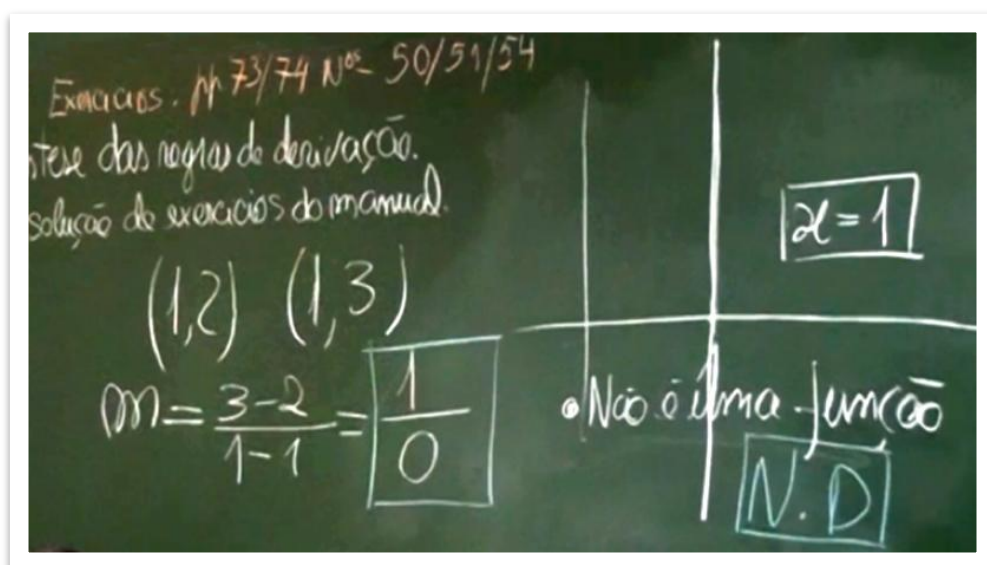 Exercicios. pp 73/74 Nos- 50/51/54
ntese das regras de derivação.
solução de exercicios do manual.
(1,2) (1,3)
m = 3-2 / 1-1 = 1 / 0
x = 1
• Não é uma função
N.D